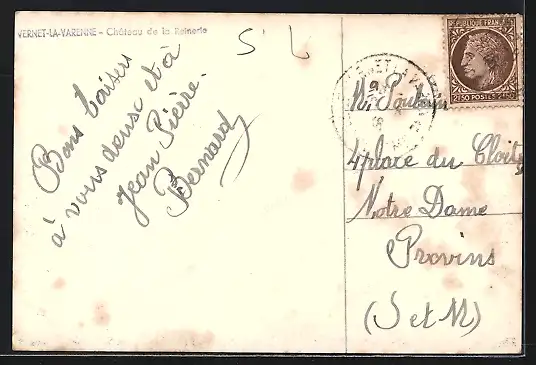 VERNET-LA-VARENNE - Château de la Reinerie
S' L
Bons baisers
à vous deux et à
Jean Pierre.
Bernard
REPUBLIQUE FRANÇ
2f50 POSTES 2f50
VERNET-LA
M,
4 place du Cloit
Notre Dame
Provins
(S et M)